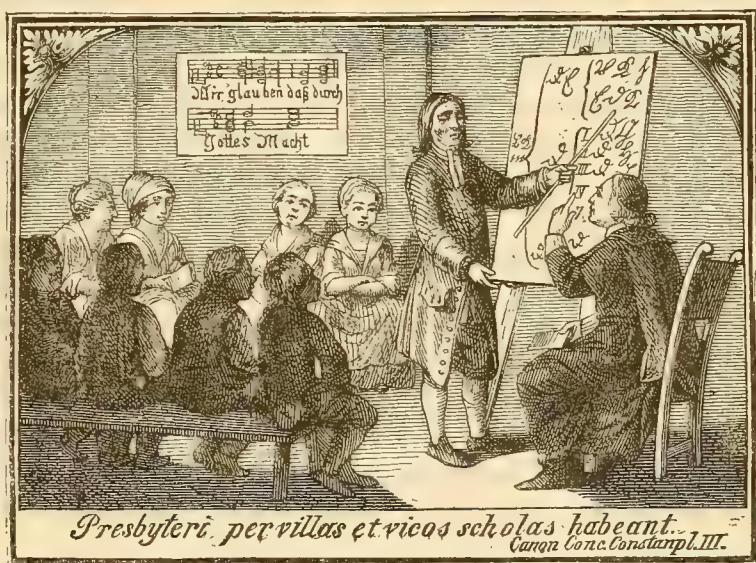 Wir glauben daß durch
Gottes Macht
Presbyteri per villas et vicos scholas habeant.
Canon Conc. Constanpl. III.